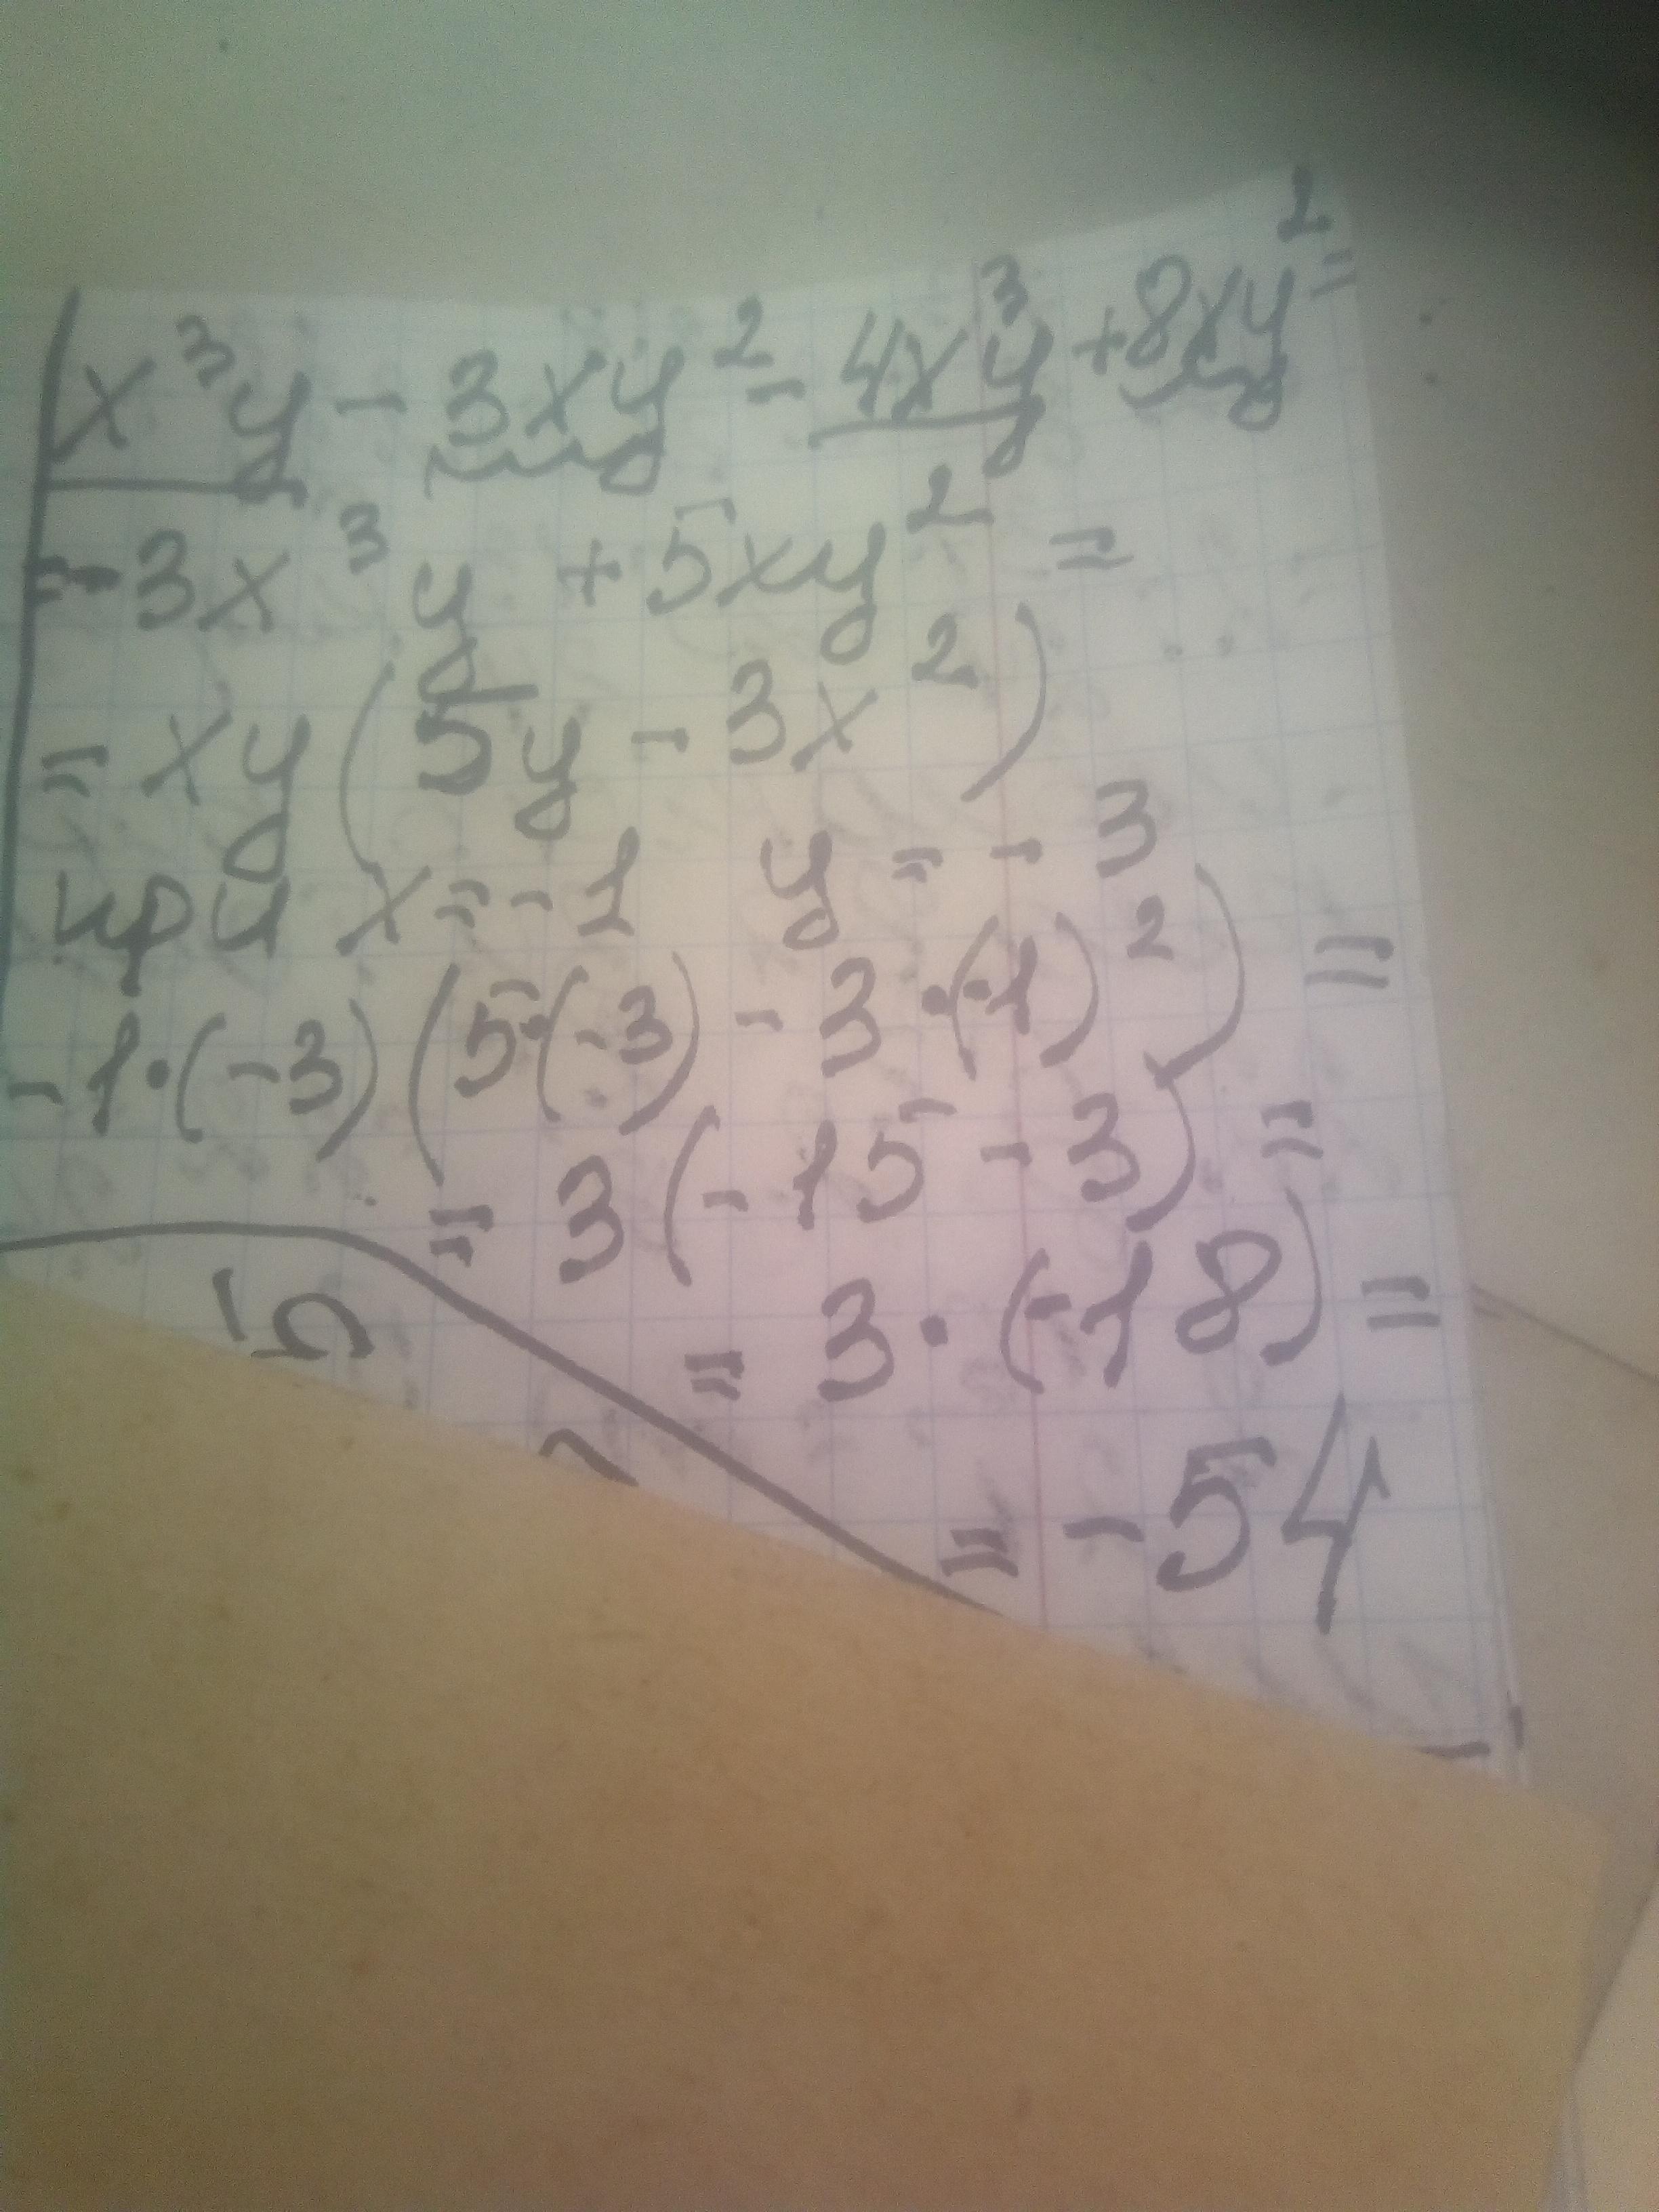 x³y - 3xy² - 4xy³ + 8xy² =
= -3x³y + 5xy² =
= xy(5y - 3x²)
при x = -1 y = -3
-1·(-3)(5·(-3) - 3·(-1)²) =
= 3(-15 - 3) =
= 3·(-18) =
= -54